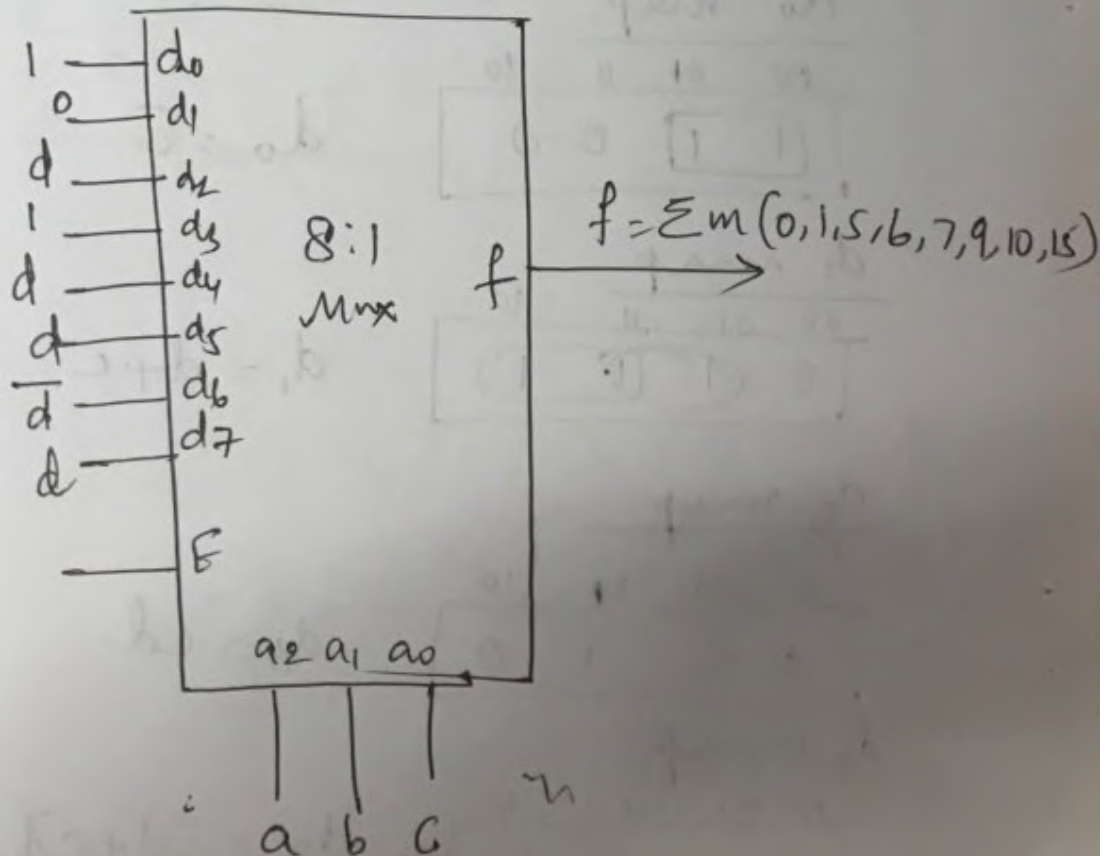 1 d0
0 d1
d d2
1 d3
d d4
d d5
d̅ d6
d d7
8:1
Mux
f
f = Σm(0,1,5,6,7,9,10,15)
E
a2 a1 a0
a b c